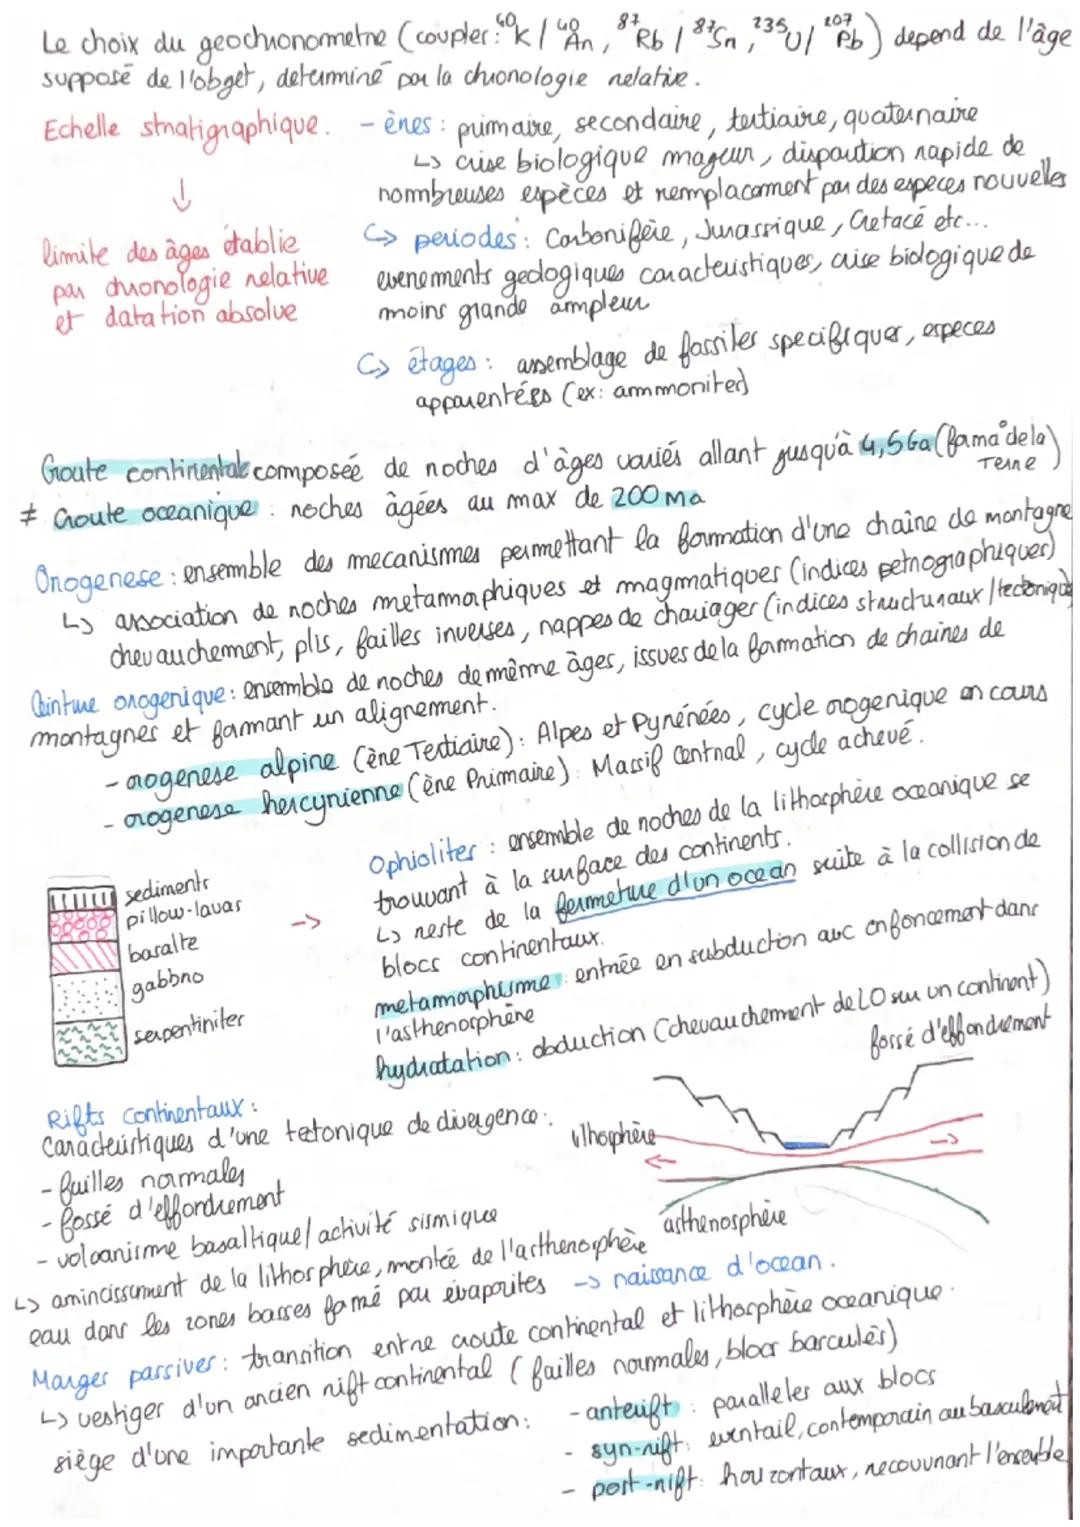 Le choix du geochronometre (couples: ⁴⁰K / ⁴⁰Ar, ⁸⁷Rb / ⁸⁷Sr, ²³⁵U / ²⁰⁷Pb) depend de l'âge
supposé de l'obget, determiné par la chronologie relative.
Echelle stratigraphique. - ères : primaire, secondaire, tertiaire, quaternaire
↳ crise biologique mageur, disparition rapide de
nombreuses espèces et remplacament par des especes nouvelles
↓
limite des âges établie
par chronologie relative
et datation absolue
↳ periodes : Carbonifère, Jurassique, Cretacé etc...
evenements geologiques caracteristiques, crise biologique de
moins grande ampleur
↳ étages : assemblage de fossiles specifiques, especes
apparentées (ex: ammonites)
Croute continentale composée de roches d'âges variés allant jusqu'à 4,5 Ga (forma° de la Terre)
≠ Croute oceanique : roches âgées au max de 200 Ma
Orogenese : ensemble des mecanismes permettant la formation d'une chaîne de montagne
↳ association de roches metamorphiques et magmatiques (indices petrographiques)
chevauchement, plis, failles inverses, nappes de charriages (indices structuraux / tectoniques)
Ceinture orogenique : ensemble de roches de même âges, issues de la formation de chaines de
montagnes et formant un alignement.
- orogenese alpine (ère Tertiaire) : Alpes et Pyrénées, cycle orogenique en cours
- orogenese hercynienne (ère Primaire) : Massif Central, cycle achevé.
sediments
pillow-lavas
basalte
gabbro
serpentinites
→
Ophiolites : ensemble de roches de la lithosphère oceanique se
trouvant à la surface des continents.
↳ reste de la fermeture d'un ocean suite à la collision de
blocs continentaux.
metamorphisme : entrée en subduction avc enfoncement dans
l'asthenosphère
hydratation : obduction (chevauchement de LO sur un continent)
fossé d'effondrement
lithosphère
asthenosphère
Rifts continentaux :
Caracteristiques d'une tetonique de divergence :
- failles normales
- fossé d'effondrement
- volcanisme basaltique / activité sismique
↳ amincissement de la lithosphère, montée de l'asthenosphère
eau dans les zones basses formé par évaporites → naissance d'ocean.
Marges passives : transition entre croute continental et lithosphère oceanique.
↳ vestiges d'un ancien rift continental (failles normales, blocs basculés)
siège d'une importante sedimentation :
- anterift : paralleles aux blocs
- syn-rift : eventail, contemporain au basculement
- post-rift : horizontaux, recouvrant l'ensemble